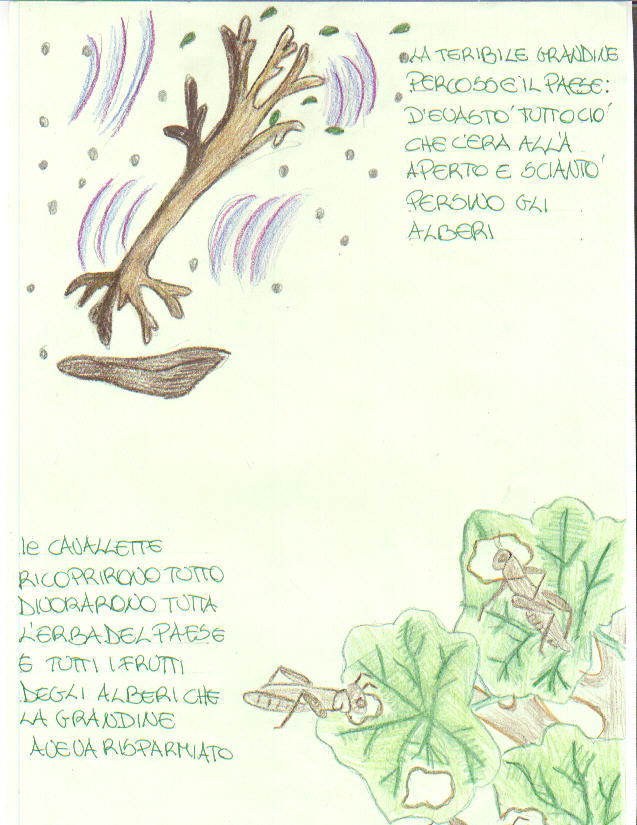 LA TERIBILE GRANDINE
PERCOSSE IL PAESE:
D'EVASTO' TUTTO CIO'
CHE C'ERA ALL'A
APERTO E SCIANTO'
PERSINO GLI
ALBERI
le CAVALLETTE
RICOPRIRONO TUTTO
DIVORARONO TUTTA
L'ERBA DEL PAESE
E TUTTI I FRUTTI
DEGLI ALBERI CHE
LA GRANDINE
AVEVA RISPARMIATO